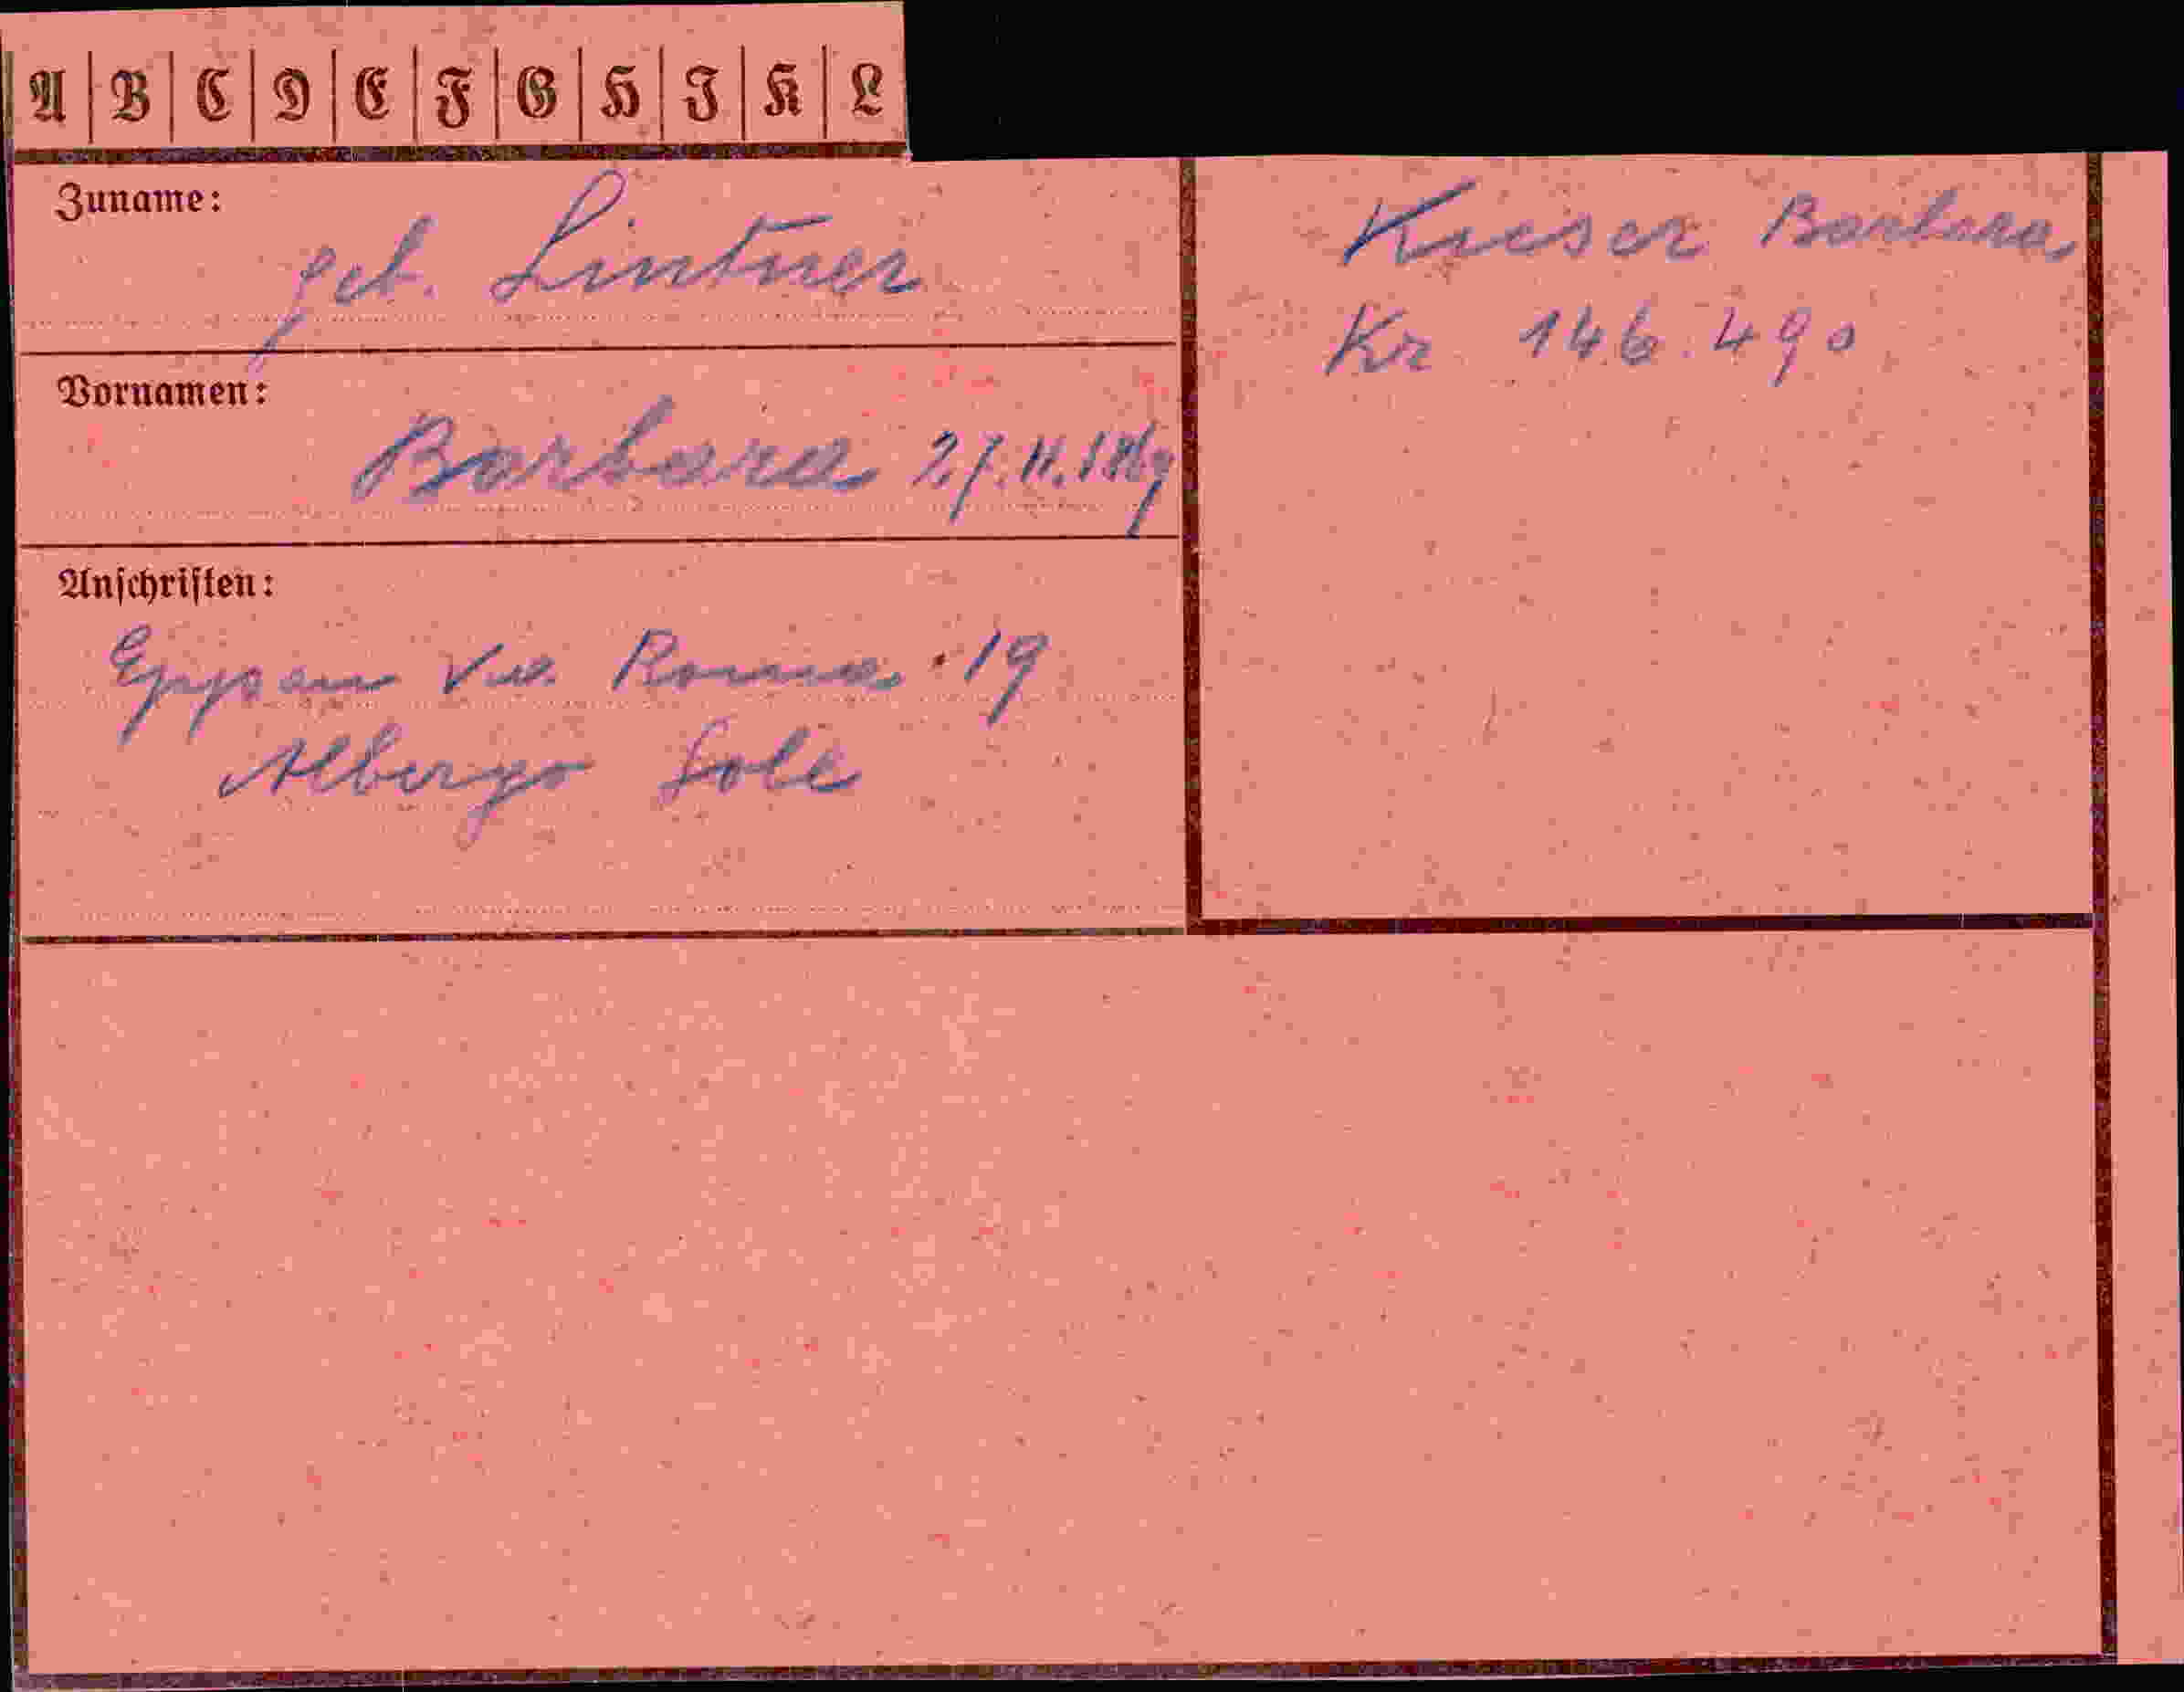 A B C D E F G H I K L
Zuname:
geb. Lintner
Vornamen:
Barbara 27.11.
Anschriften:
Eppan Via Roma 19
Albergo Sole
Kieser Barbara
Kr 146.490